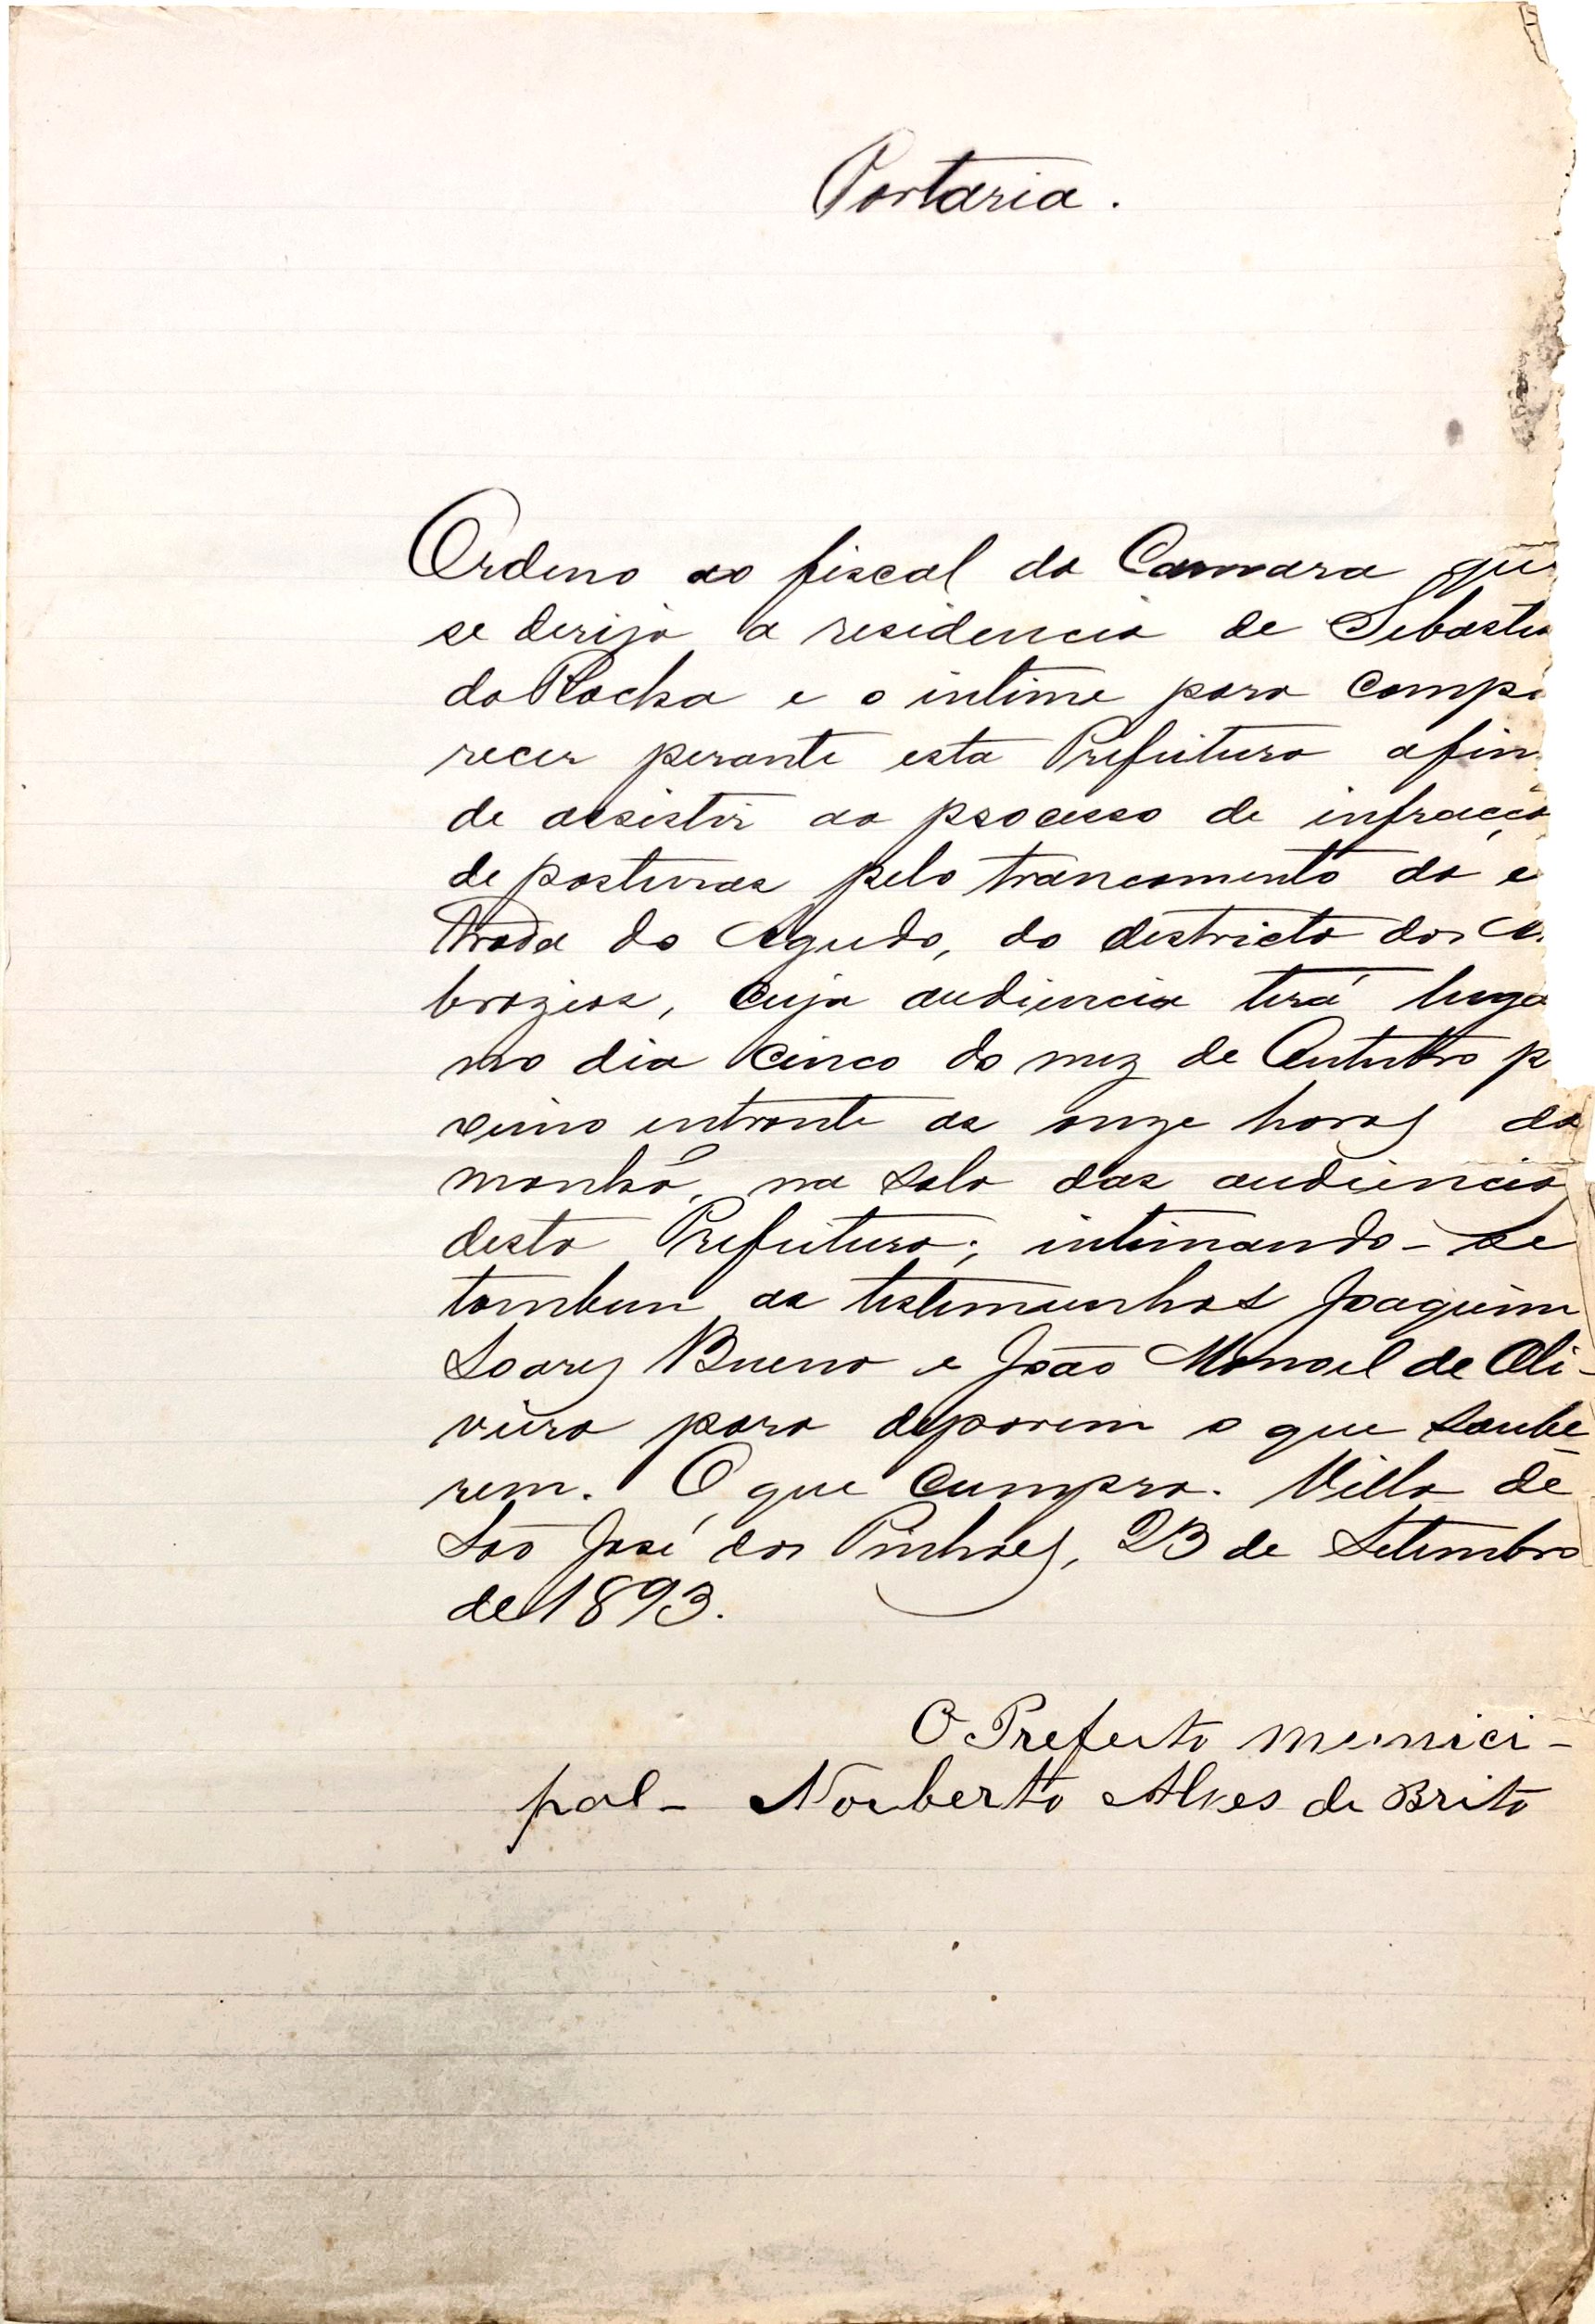 Portaria.
Ordeno ao fiscal da Camara que
se derija a residencia de Sebastia
da Rocha e o intime para compa
recer perante esta Prefeitura afim
de assistir ao processo de infracção
de posturas pelo trancamento da es
trada do Agudo, do districto dos Am
brozios, cuja audiencia terá luga
no dia cinco do mez de Outubro p
vimo entrante as onze horas da
manhã, na sala das audiencias
desta Prefeitura; intimando-se
tambem as testimunhas Joaquim
Soares Bueno e João Manoel de Oli-
veira para deporem o que soube
rem. O que cumpra. Villa de
São José dos Pinhaes, 23 de Setembro
de 1893.
O Prefeito munici-
pal- Norberto Alves de Brito